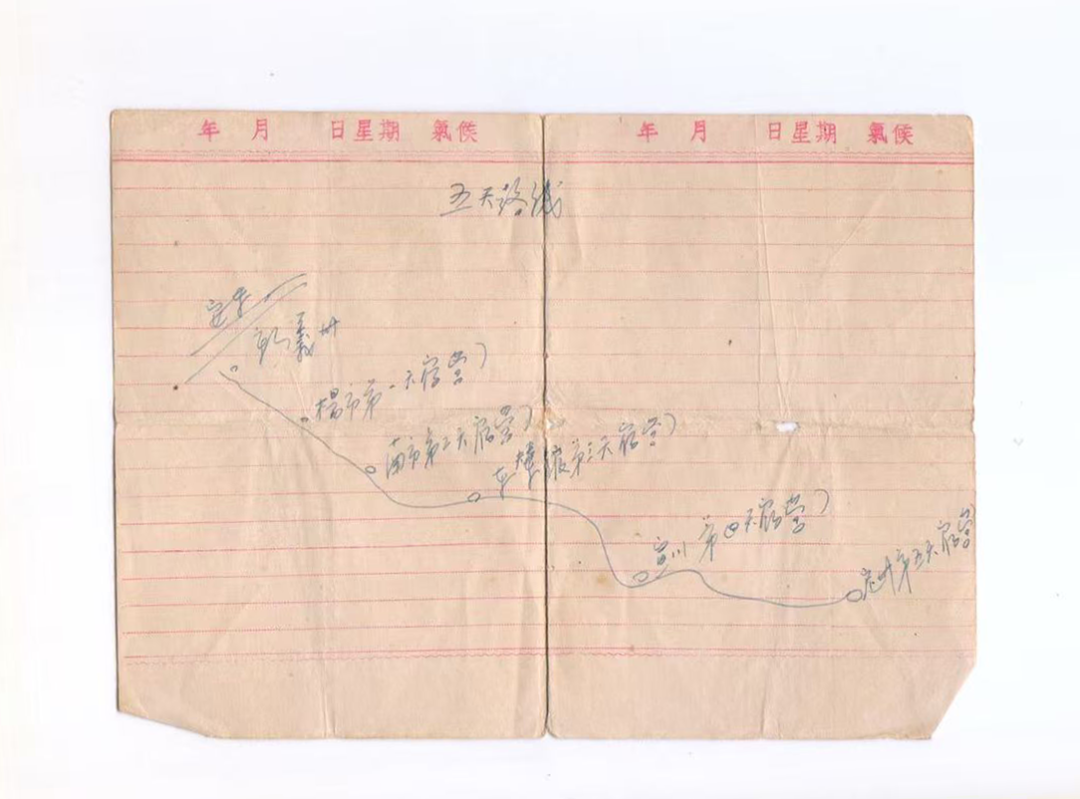 年 月 日星期 氣候
年 月 日星期 氣候
五天路线
安東
新義州
楊市第一天宿营)
南市第二天宿营)
车辇舘第三天宿营)
宣川第四天宿营)
定州第五天宿营